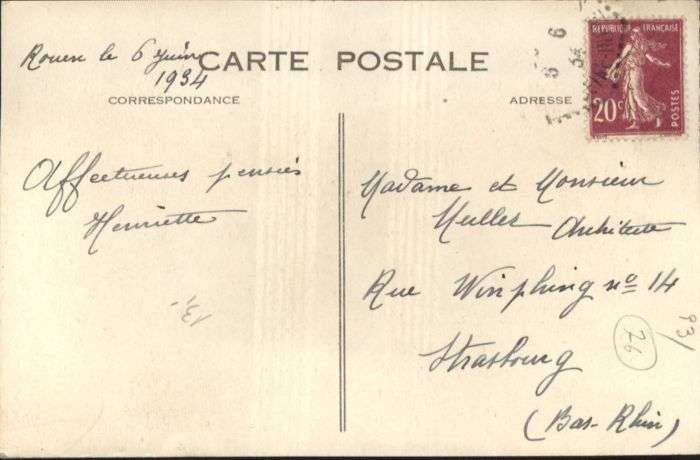 Rouen le 6 Juin
1934
CARTE POSTALE
CORRESPONDANCE
ADRESSE
REPUBLIQUE FRANÇAISE
20c
POSTES
6 6
34
Affectueuses pensées
Henriette
13,-
Madame et Monsieur
Muller Architecte
Rue Wimpheling no 14
Strasbourg
(Bas-Rhin)
93/
26